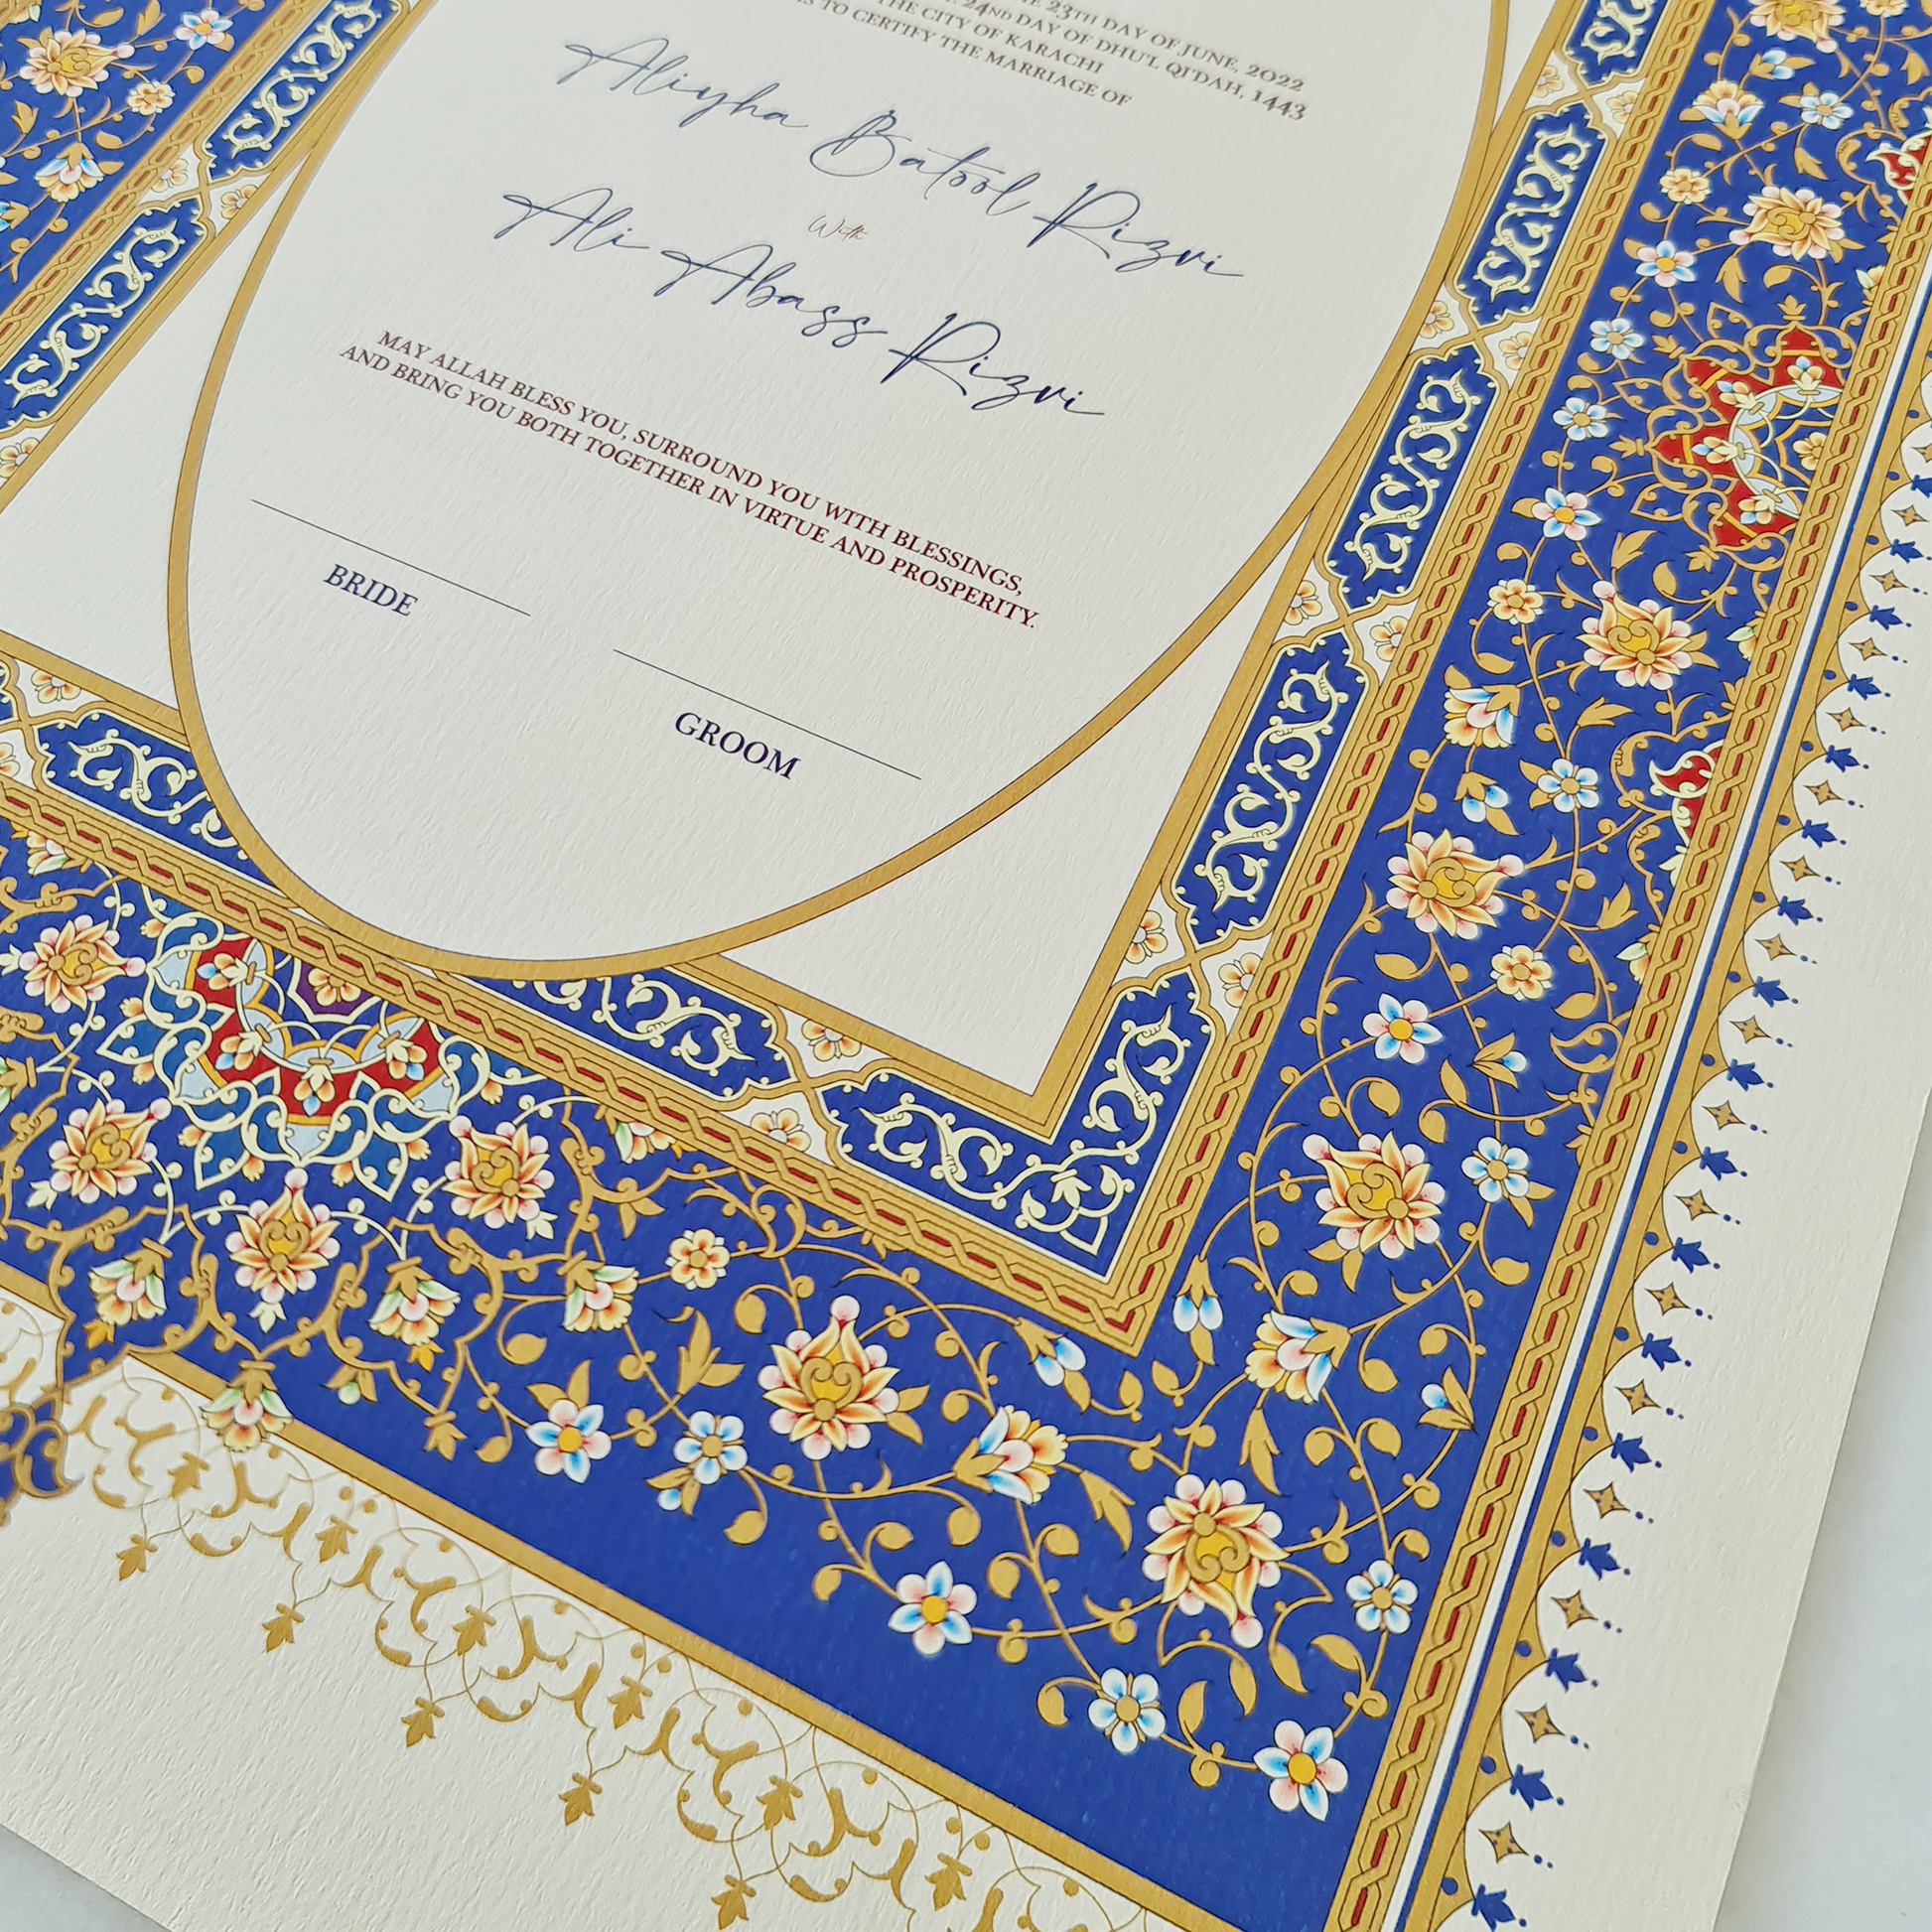 23TH DAY OF JUNE, 2022
24ND DAY OF DHU'L QI'DAH, 1443
THE CITY OF KARACHI
TO CERTIFY THE MARRIAGE OF
Aliyha Batool Rizvi
With
Ali Abass Rizvi
MAY ALLAH BLESS YOU, SURROUND YOU WITH BLESSINGS,
AND BRING YOU BOTH TOGETHER IN VIRTUE AND PROSPERITY.
BRIDE
GROOM